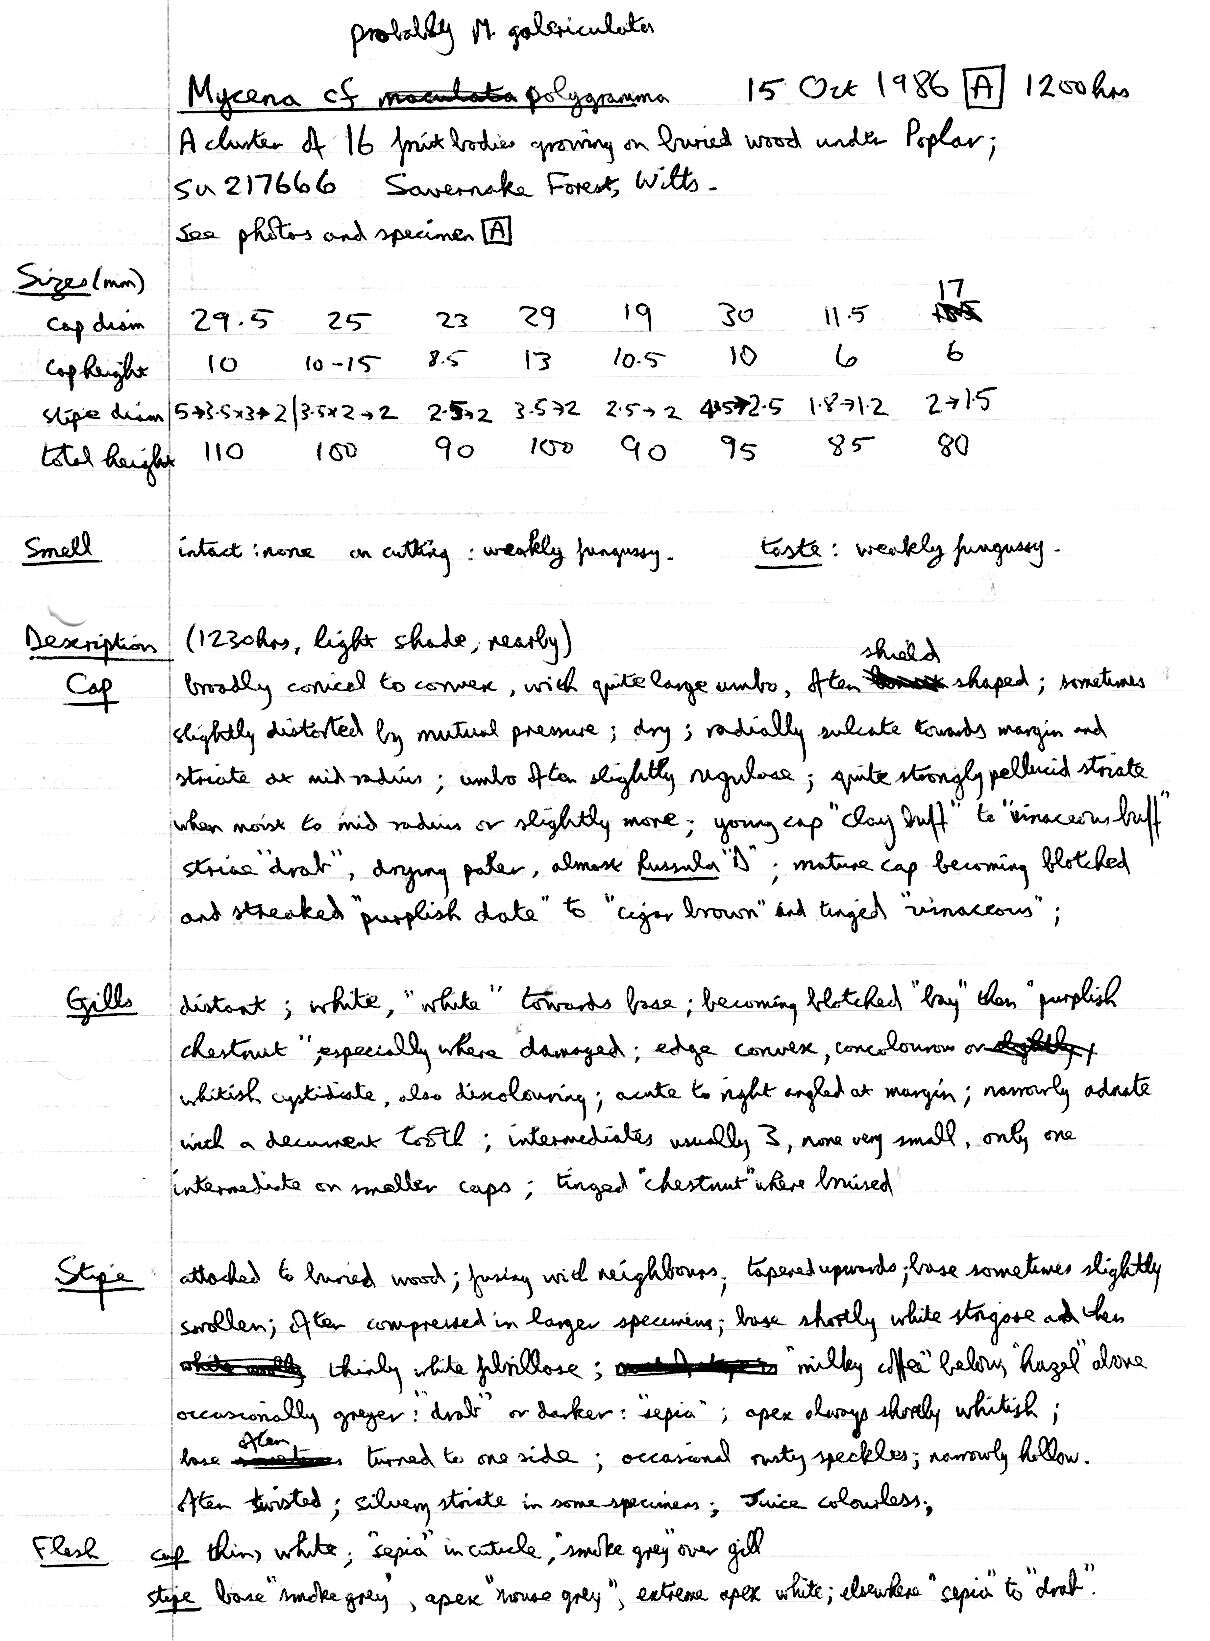 probably M. galericulata
Mycena cf maculata polygramma 15 Oct 1986 A 1200hrs
A cluster of 16 fruit bodies growing on buried wood under Poplar;
SU 217666 Savernake Forest, Wilts.
See photos and specimen A
Sizes (mm)
17
cap diam 29.5 25 23 29 19 30 11.5
cap height 10 10-15 8.5 13 10.5 10 6 6
stipe diam 5→3.5x3→2 3.5x2→2 2.5→2 3.5→2 2.5→2 4.5→2.5 1.8→1.2 2→1.5
total height 110 100 90 100 90 95 85 80
Smell intact: none on cutting: weakly fungussy. taste: weakly fungussy.
Description (1230hrs, light shade, nearby)
shield
Cap broadly conical to convex, with quite large umbo, often shaped; sometimes
slightly distorted by mutual pressure; dry; radially sulcate towards margin and
striate at mid radius; umbo often slightly rugulose; quite strongly pellucid striate
when moist to mid radius or slightly more; young cap "clay buff" to "vinaceous buff"
striae "drab", drying paler, almost Russula "D"; mature cap becoming blotched
and streaked "purplish date" to "cigar brown" and tinged "vinaceous";
Gills distant; white, "white" towards base; becoming blotched "bay" then "purplish
chestnut", especially where damaged; edge convex, concolourous or slightly,
whitish cystidiate, also discolouring; acute to right angled at margin; narrowly adnate
with a decurrent tooth; intermediates usually 3, none very small, only one
intermediate on smaller caps; tinged "chestnut" where bruised
Stipe attached to buried wood; fusing with neighbours; tapered upwards; base sometimes slightly
swollen; often compressed in larger specimens; base shortly white strigose and then
white woolly thinly white fibrillose; "milky coffee" below, "hazel" above
occasionally greyer: "drab" or darker: "sepia"; apex always shortly whitish;
often
base sometimes turned to one side; occasional rusty speckles; narrowly hollow.
Often twisted; silvery striate in some specimens; Juice colourless;
Flesh cap thin, white; "sepia" in cuticle, "smoke grey" over gill
stipe base "smoke grey", apex "mouse grey", extreme apex white; elsewhere "sepia" to "drab".